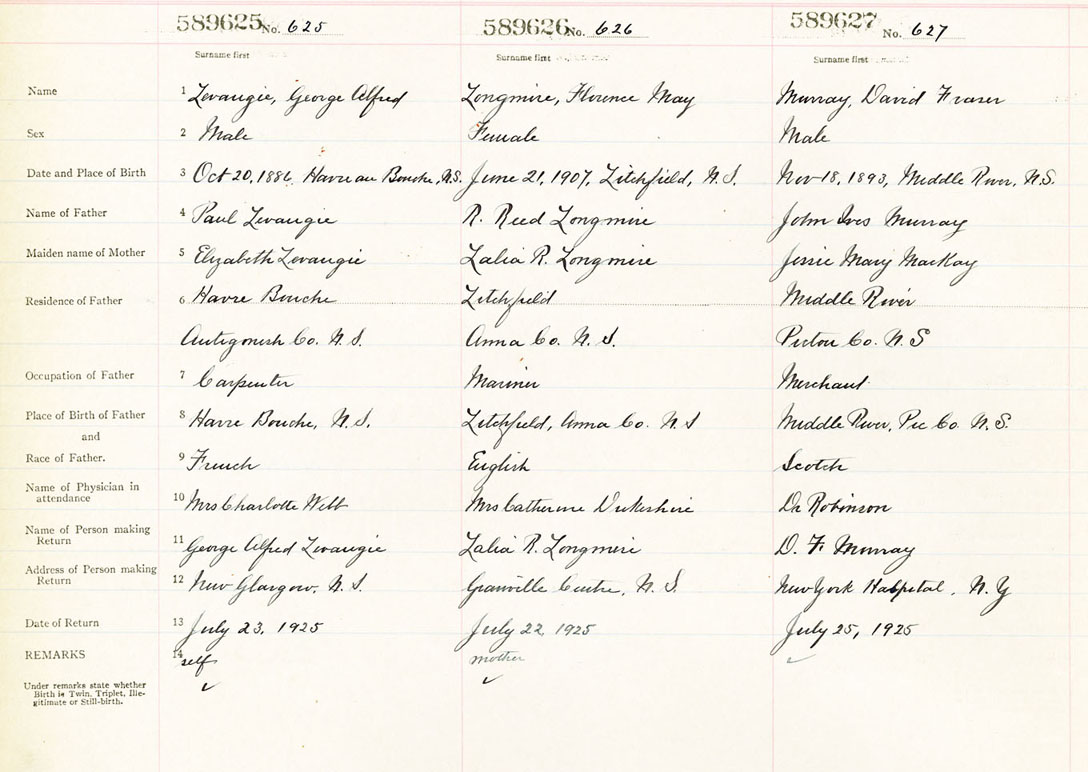 589625 No. 625 589626 No. 626 589627 No. 627
Surname first Surname first Surname first
Name 1 Levangie, George Alfred Longmire, Florence May Murray, David Fraser
Sex 2 Male Female Male
Date and Place of Birth 3 Oct 20, 1886, Havre au Bouche, N.S. June 21, 1907, Litchfield, N.S. Nov 18, 1893, Middle River, N.S.
Name of Father 4 Paul Levangie R. Reed Longmire John Ives Murray
Maiden name of Mother 5 Elizabeth Levangie Lalia R. Longmire Jessie Mary MacKay
Residence of Father 6 Havre Bouche Litchfield Middle River
Antigonish Co. N.S. Anna Co. N.S. Pictou Co. N.S
Occupation of Father 7 Carpenter Mariner Merchant
Place of Birth of Father 8 Havre Bouche, N.S. Litchfield, Anna Co. N.S Middle River, Pic Co. N.S.
and
Race of Father. 9 French English Scotch
Name of Physician in
attendance 10 Mrs Charlotte Webb Mrs Catherine Dukeshire Dr Robinson
Name of Person making
Return 11 George Alfred Levangie Lalia R. Longmire D. F. Murray
Address of Person making
Return 12 New Glasgow, N.S. Granville Centre, N.S. New York Hospital, N.Y
Date of Return 13 July 23, 1925 July 22, 1925 July 25, 1925
REMARKS 14 self mother
Under remarks state whether
Birth is Twin, Triplet, Ille-
gitimate or Still-birth.